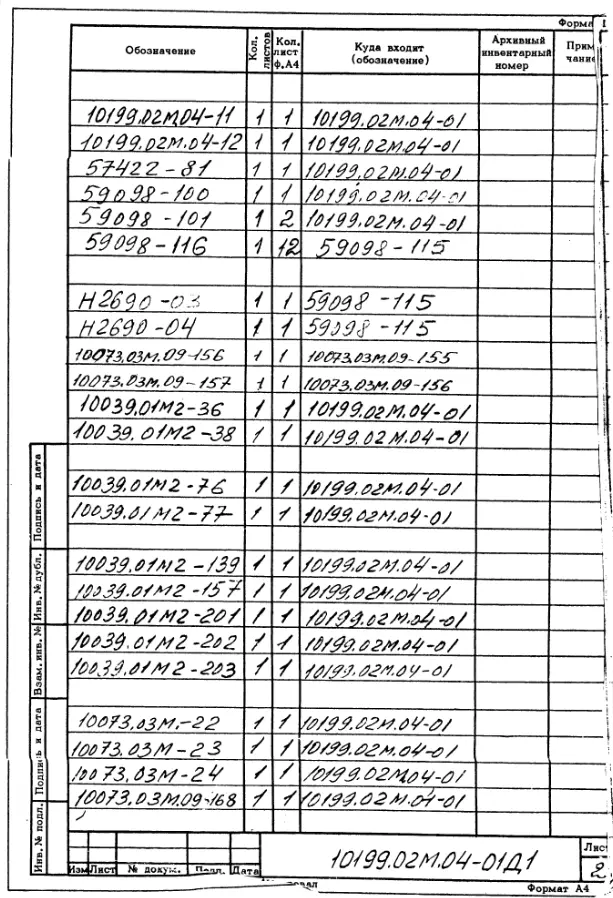 Формат
Обозначение Кол. листов Кол. лист ф.А4 Куда входит (обозначение) Архивный инвентарный номер Прим чание
10199.02М.04-11 1 1 10199.02М.04-01
10199.02М.04-12 1 1 10199.02М.04-01
57422-81 1 1 10199.02М.04-01
59098-100 1 1 10199.02М.04-01
59098-101 1 2 10199.02М.04-01
59098-116 1 12 59098-115
Н2690-03 1 1 59098-115
Н2690-04 1 1 59098-115
10073.03М.09-156 1 1 10073.03М.09-155
10073.03М.09-157 1 1 10073.03М.09-156
10039.01М2-36 1 1 10199.02М.04-01
10039.01М2-38 1 1 10199.02М.04-01
10039.01М2-76 1 1 10199.02М.04-01
10039.01М2-77 1 1 10199.02М.04-01
10039.01М2-139 1 1 10199.02М.04-01
10039.01М2-157 1 1 10199.02М.04-01
10039.01М2-201 1 1 10199.02М.04-01
10039.01М2-202 1 1 10199.02М.04-01
10039.01М2-203 1 1 10199.02М.04-01
10073.03М.-22 1 1 10199.02М.04-01
10073.03М-23 1 1 10199.02М.04-01
10073.03М-24 1 1 10199.02М.04-01
10073.03М.09-168 1 1 10199.02М.04-01
Подпись и дата
Инв. № дубл.
Взам. инв. №
Подпись и дата
Инв. № подл.
Изм Лист № докум. Подп. Дата
10199.02М.04-01Д1
Лис
2
Формат А4